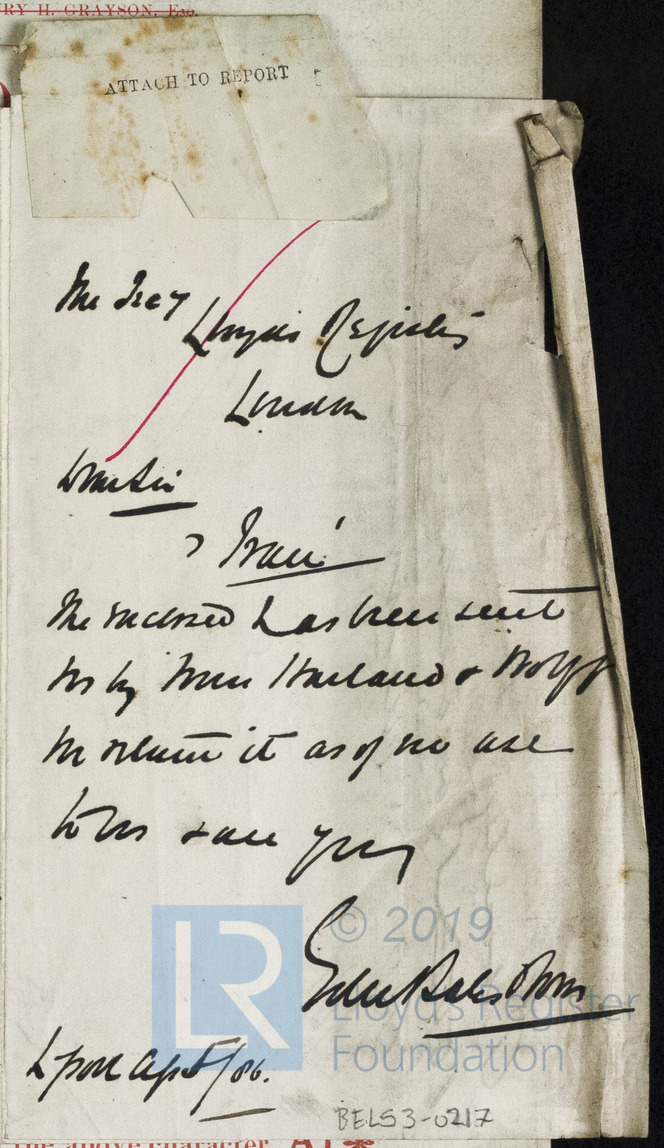 RY H. GRAYSON, Esq.
ATTACH TO REPORT
The Secy
Lloyds Register
London
Dear Sir
"Irani"
The enclosed has been sent
us by Messrs Harland & Wolff
We return it as of no use
to us & are yrs
Bates & Sons
© 2019
Lloyd's Register
Foundation
LR
Lpool Apr 5/86.
BELS3-0217
the above character A1